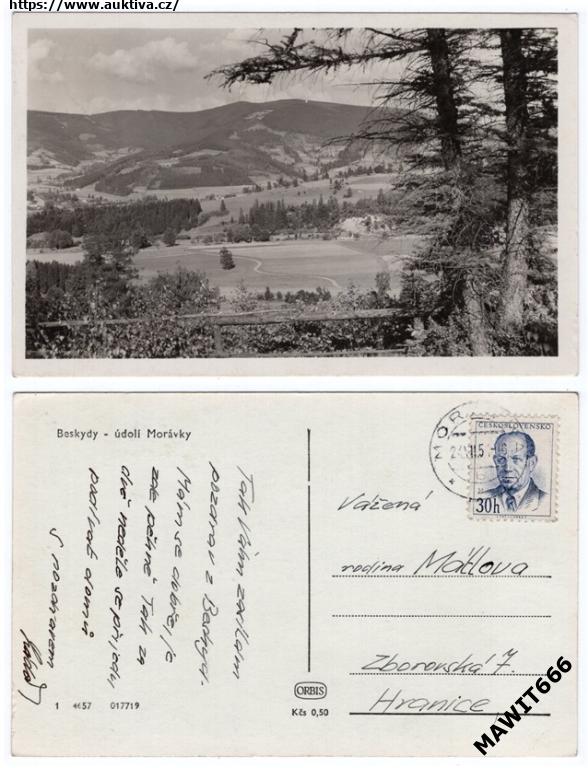 https://www.auktiva.cz/
Beskydy - údolí Morávky
Tak Vám zasílám
pozdrav z Beskyd.
Mám se dobře je
zde pěkně Tak za
dvě neděle se přijedu
podívat domů
S pozdravem
1 4657 017719
ORBIS
Kčs 0,50
MOR
ČESKOSLOVENSKO
30h
Vážená
rodina Mátlova
Zborovská 7.
Hranice
MAWIT666